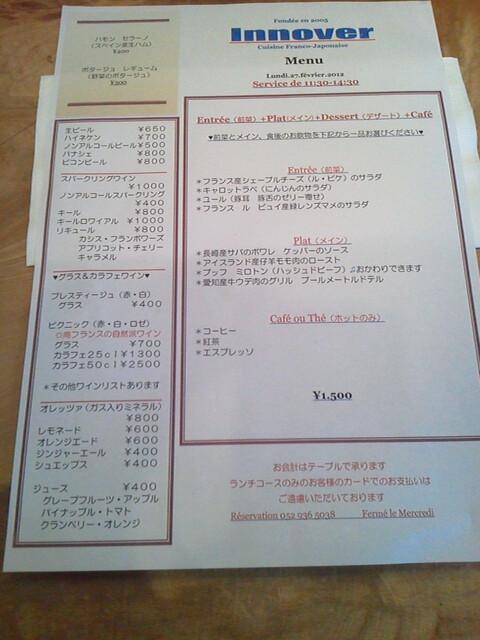 ハモン セラーノ
(スペイン産生ハム)
¥400
ポタージュ レギューム
(野菜のポタージュ)
¥200
生ビール ¥650
ハイネケン ¥700
ノンアルコールビール ¥500
パナシェ ¥800
ピコンビール ¥800
スパークリングワイン
¥1000
ノンアルコールスパークリング
¥400
キール ¥800
キールロワイアル ¥1000
リキュール ¥800
カシス・フランボワーズ
アプリコット・チェリー
キャラメル
♥グラス&カラフェワイン♥
プレスティージュ(赤・白)
グラス ¥400
ピクニック(赤・白・ロゼ)
□南フランスの自然派ワイン
グラス ¥700
カラフェ25cl ¥1300
カラフェ50cl ¥2500
*その他ワインリストあります
オレッツァ(ガス入りミネラル)
¥800
レモネード ¥600
オレンジエード ¥600
ジンジャーエール ¥400
シュエップス ¥400
ジュース ¥400
グレープフルーツ・アップル
パイナップル・トマト
クランベリー・オレンジ
Fondée en 2005
Innover
Cuisine Franco-Japonaise
Menu
Lundi.27.février.2012
Service de 11:30-14:30
Entrée(前菜)+Plat(メイン)+Dessert(デザート)+Café
♥前菜とメイン、食後のお飲物を下記から一品お選びください♥
Entrée(前菜)
*フランス産シェーブルチーズ(ル・ピケ)のサラダ
*キャロットラペ(にんじんのサラダ)
*ユール(豚耳 豚舌のゼリー寄せ)
*フランス ル ピュイ産緑レンズマメのサラダ
Plat(メイン)
*長崎産サバのポワレ ケッパーのソース
*アイスランド産仔羊モモ肉のロースト
*ブッフ ミロトン(ハッシュドビーフ)♫おかわりできます
*愛知産牛ウデ肉のグリル ブールメートルドテル
Café ou Thé(ホットのみ)
*コーヒー
*紅茶
*エスプレッソ
¥1.500
お会計はテーブルで承ります
ランチコースのみのお客様のカードでのお支払いは
ご遠慮いただいております
Réservation 052 936 5038 Fermé le Mercredi